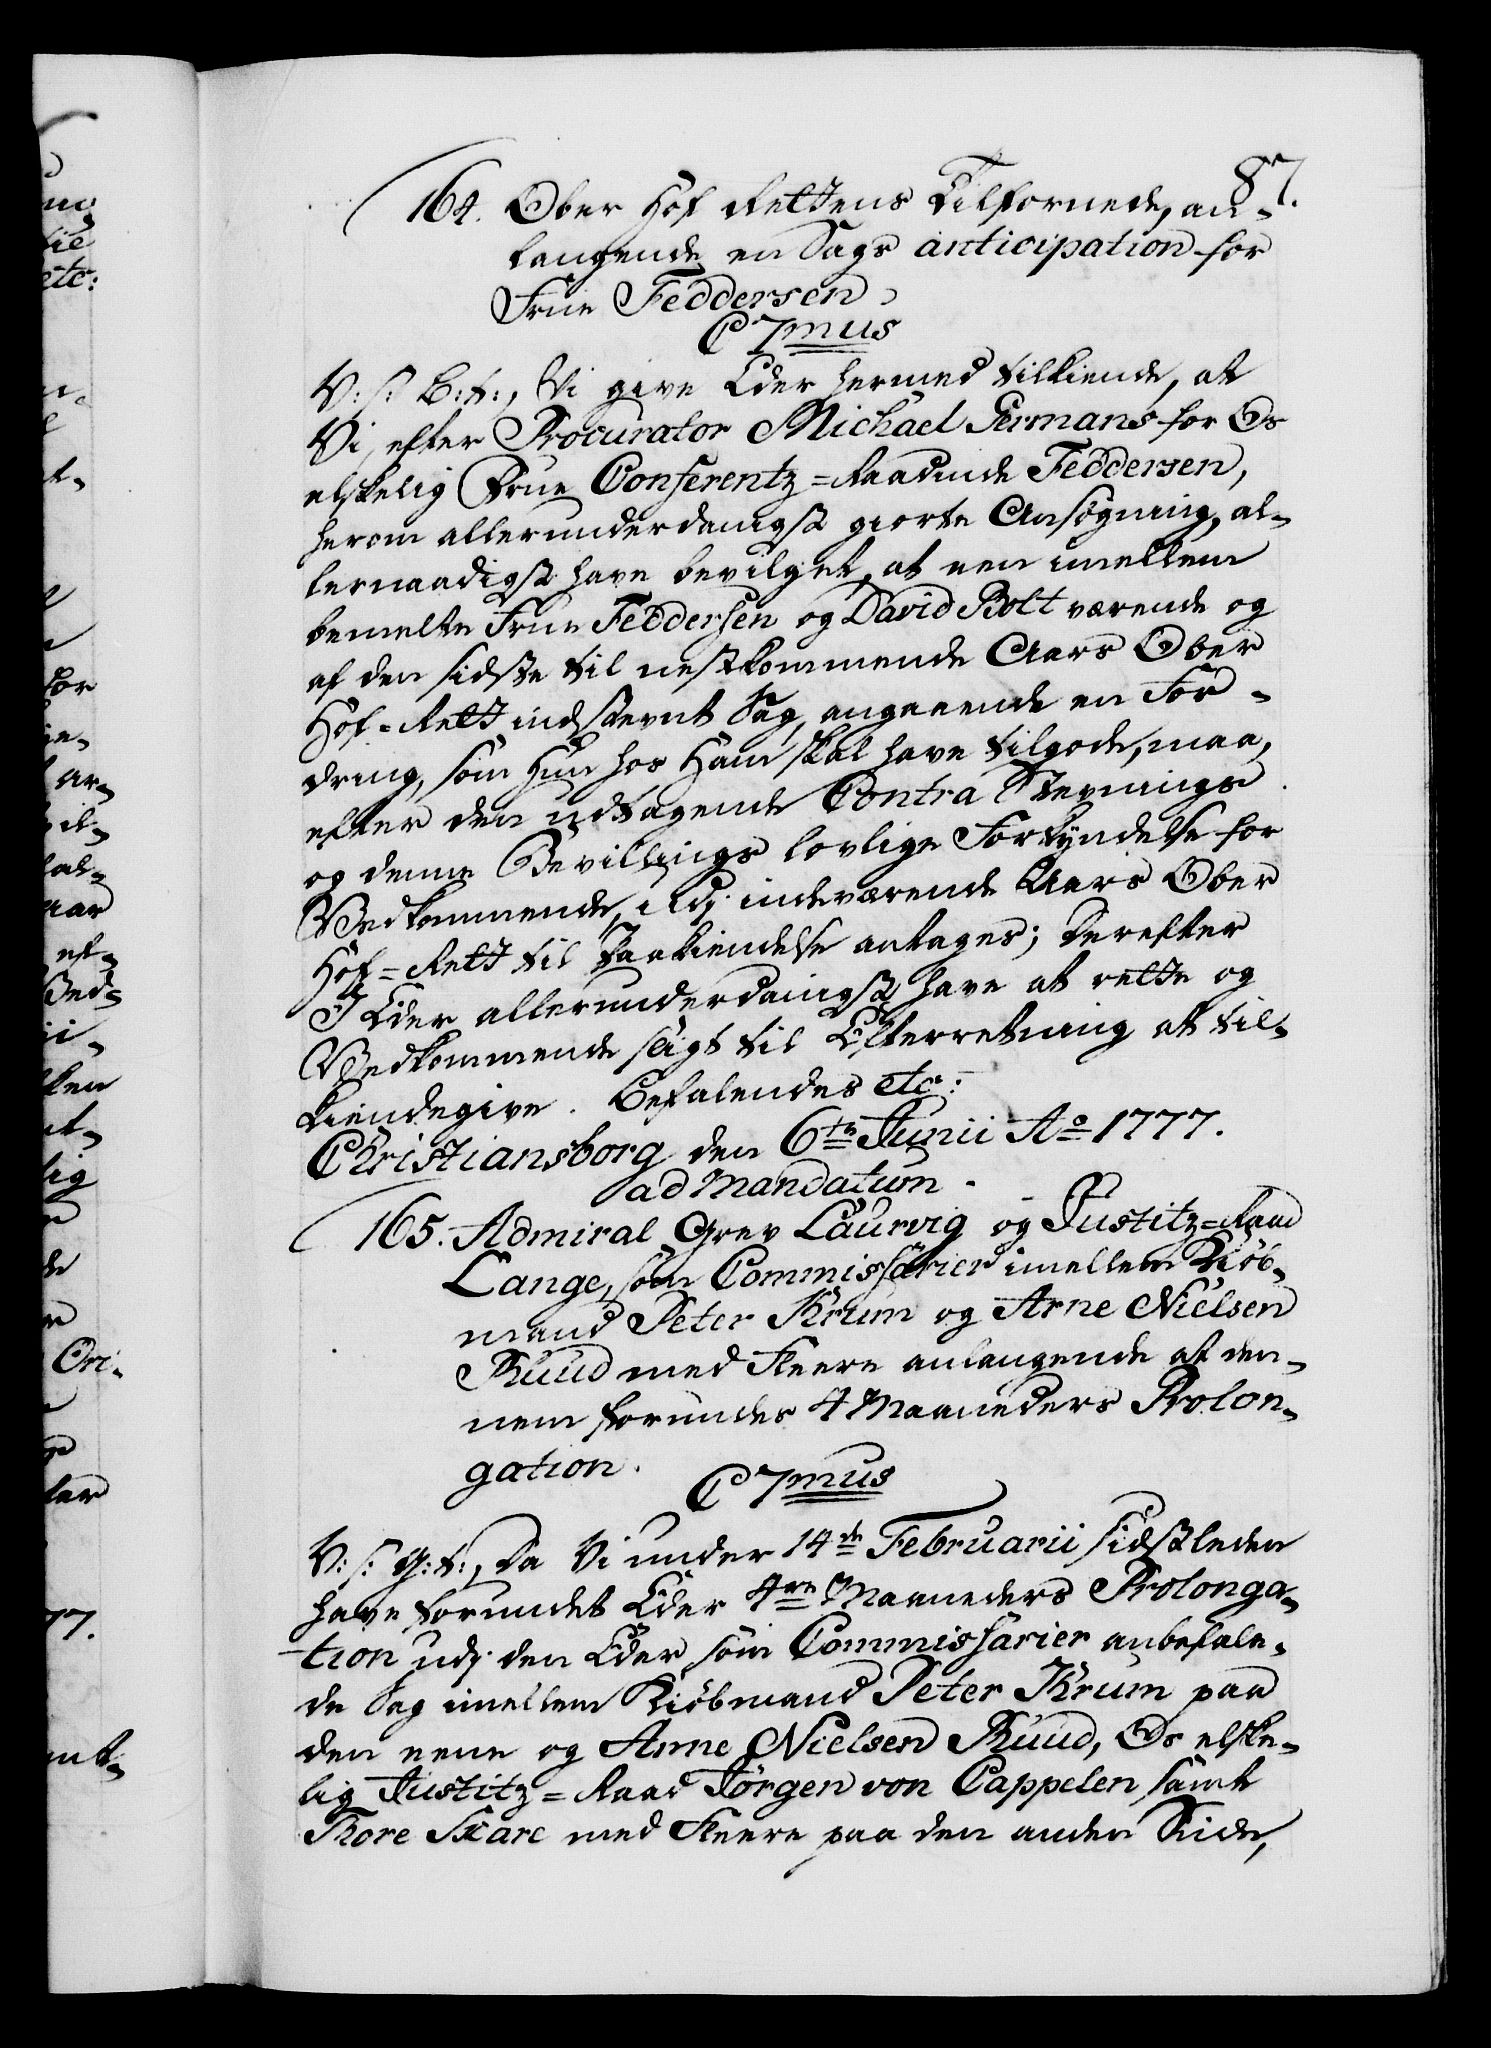 87.
164. Ober Hof Rettens Tilfornede, an-
langende en Sags anticipation for
Frue Feddersen.
C 7mus
V: s: B: t:, Vi give Eder hermed tilkiende, at
Vi, efter Procurator Michael Permans for Os
elskelig Frue Conferentz=Raadinde Feddersen,
herom allerunderdanigst giorte Ansøgning, al-
lernaadigst have bevilget, at een imellem
bemelte Frue Feddersen og David Bolt værende og
af den sidste til nestkommende Aars Ober
Hof=Rett indstevnt Sag, angaaende en For-
dring, som Hun hos Ham skal have tilgode, maa,
efter den udtagende Contra Stevnings
og denne Bevillings lovlige Forkyndelse for
Vedkommende, udj indeværende Aars Ober
Hof=Rett til Paakiendelse antages; Derefter
I Eder allerunderdanigst have at rette og
Vedkommende sligt til Efterretning at til-
kiendegive. Befalendes etc:
Christiansborg den 6te Junii Ao 1777.
ad Mandatum.
165. Admiral Grev Laurvig og Justitz=Raad
Lange, som Commissarier imellem Kiøb-
mand Peter Krum og Arne Nielsen
Ruud med Fleere anlangende at den-
nem forundes 4 Maaneders Prolon-
gation.
C 7mus
V: s: G: t:, Da Vi under 14de Februarii sidstleden
have forundet Eder 4re Maaneders Prolonga-
tion udj den Eder som Commissarier anbefale-
de Sag imellem Kiøbmand Peter Krum paa
den eene og Arne Nielsen Ruud, Os elske-
lig Justitz=Raad Jørgen von Cappelen samt
Thore Skare med Fleere paa den anden Side,